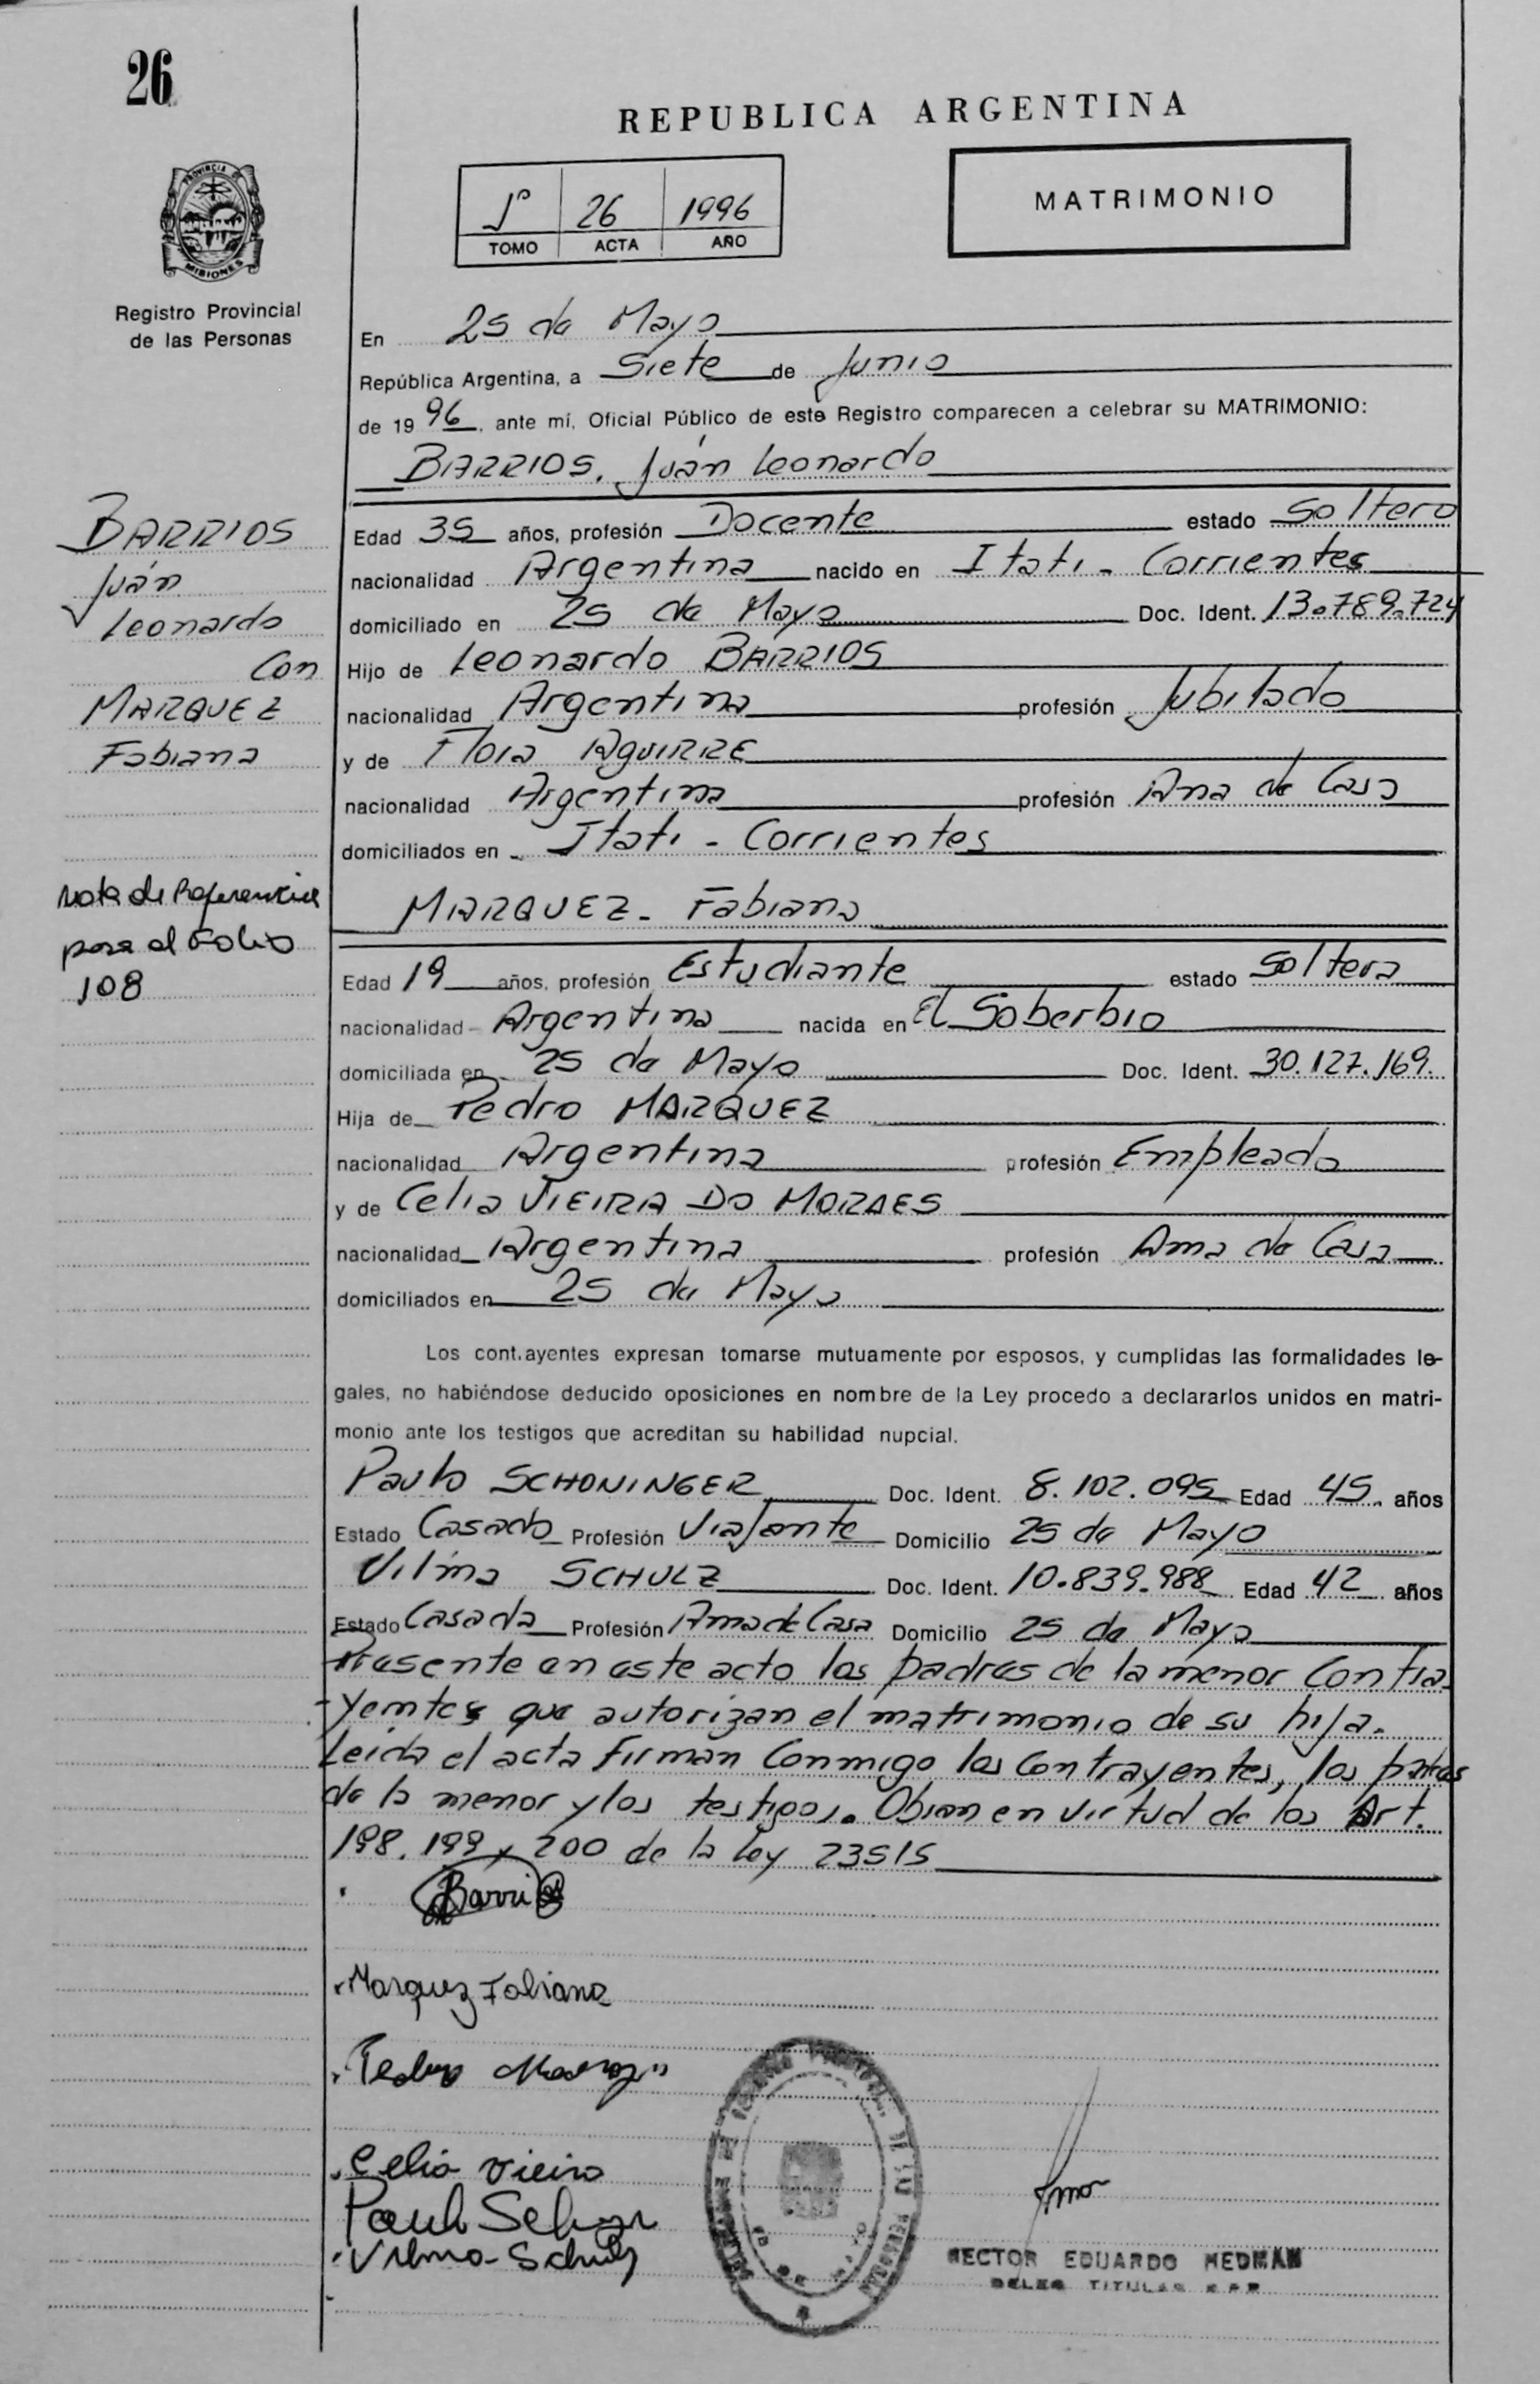 26
REPUBLICA ARGENTINA
1º 26 1996
TOMO ACTA AÑO
MATRIMONIO
PROVINCIA DE
MISIONES
Registro Provincial
de las Personas
En 25 de Mayo
República Argentina, a Siete de Junio
de 1996, ante mí, Oficial Público de este Registro comparecen a celebrar su MATRIMONIO:
BARRIOS, Juán Leonardo
BARRIOS
Juán
Leonardo
Con
MARQUEZ
Fabiana
Nota de Referencia
pasa al Folio
108
Edad 35 años, profesión Docente estado Soltero
nacionalidad Argentina nacido en Itati - Corrientes
domiciliado en 25 de Mayo Doc. Ident. 13.789.724
Hijo de Leonardo BARRIOS
nacionalidad Argentina profesión Jubilado
y de Flora AGUIRRE
nacionalidad Argentina profesión Ama de Casa
domiciliados en Itati - Corrientes
MARQUEZ - Fabiana
Edad 19 años, profesión Estudiante estado Soltera
nacionalidad Argentina nacida en El Soberbio
domiciliada en 25 de Mayo Doc. Ident. 30.127.169.
Hija de Pedro MARQUEZ
nacionalidad Argentina profesión Empleado
y de Celia VIEIRA DO MORAES
nacionalidad Argentina profesión Ama de Casa
domiciliados en 25 de Mayo
Los cont.ayentes expresan tomarse mutuamente por esposos, y cumplidas las formalidades le-
gales, no habiéndose deducido oposiciones en nombre de la Ley procedo a declararlos unidos en matri-
monio ante los testigos que acreditan su habilidad nupcial.
Paulo SCHONINGER Doc. Ident. 8.102.095 Edad 45 años
Estado Casado Profesión Viajante Domicilio 25 de Mayo
Vilma SCHULZ Doc. Ident. 10.839.988 Edad 42 años
Estado Casada Profesión Ama de Casa Domicilio 25 de Mayo
Presente en este acto los padres de la menor Contra-
yentes que autorizan el matrimonio de su hija.
Leida el acta Firman Conmigo los Contrayentes, los padres
de la menor y los testigos. Obran en virtud de los Art.
198, 199 y 200 de la Ley 23515
Barrios
Marquez Fabiana
Pedro
Celia Vieira
Vilma Schulz
HECTOR EDUARDO HEDMAN
TITULAR